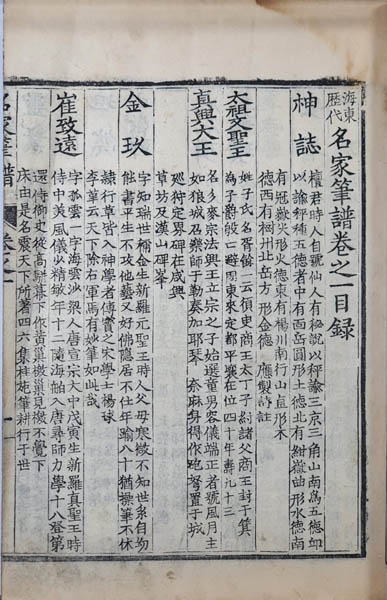 海東歷代名家筆譜卷之一目録
神誌
檀君時人自號仙人有秘說以秤諭三京三角山南爲五德丘
以諭秤種五德者中有面岳圓形土德北有紺嶽曲形水德南
有冠嶽尖形火德東有楊州南行山直形木
德西有樹州北岳方形金德 應製詩註
太祖文聖王
姓子氏名胥餘一云須臾商王太丁子紂諸父商王封于箕
爲子爵殷亡避周東來定都平壤在位四十年壽九十三
真興大王
名彡麥宗法興王立宗之子始選童男容儀端正者號風月主
如狼城召樂師于勒奏加耶琴 奈麻身得作砲弩置于城
巡狩定界碑在咸興
草坊及漢山碑峯
金玖
字知瑞世稱金生新羅元聖王時人父母寒微不知世系自幼
能書平生不攻他藝又好佛隱居不仕年踰八十猶操筆不休
隷行草皆入神學者傳寶之宋學士楊球
李革云天下除右軍焉有妙筆如此哉
崔致遠
字孤雲一字海雲沙梁人唐宣宗大中戊寅生新羅眞聖王時
侍中美風儀少精敏年十二隨海舶入唐尋師力學十八登第
還侍御史從高騈幕下作黃巢檄巢見檄不覺下
床由是名震天下所著四六集桂苑筆耕行于世
名家筆譜 卷之一